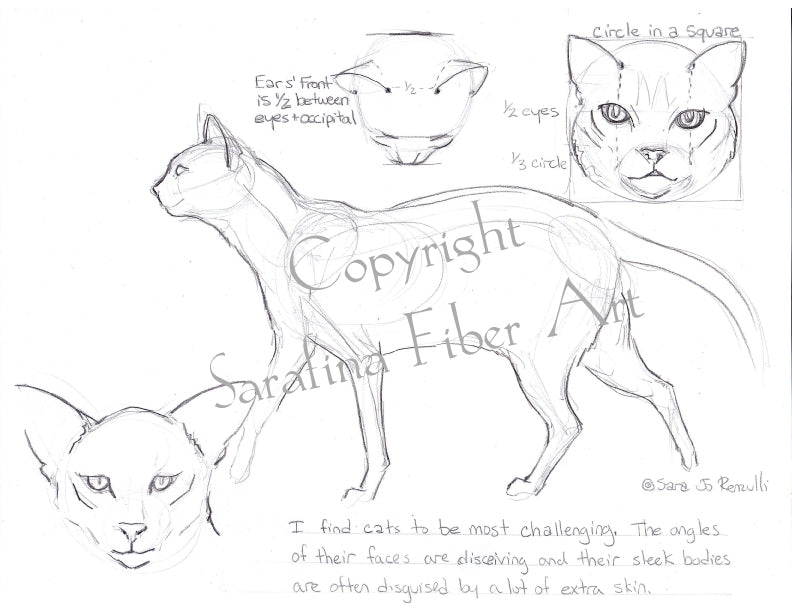 circle in a square
Ears' Front
is ½ between
eyes + occipital
½
½ eyes
⅓ circle
Copyright
Sarafina Fiber Art
©Sara Jo Renzulli
I find cats to be most challenging. The angles
of their faces are disceiving and their sleek bodies
are often disguised by a lot of extra skin.